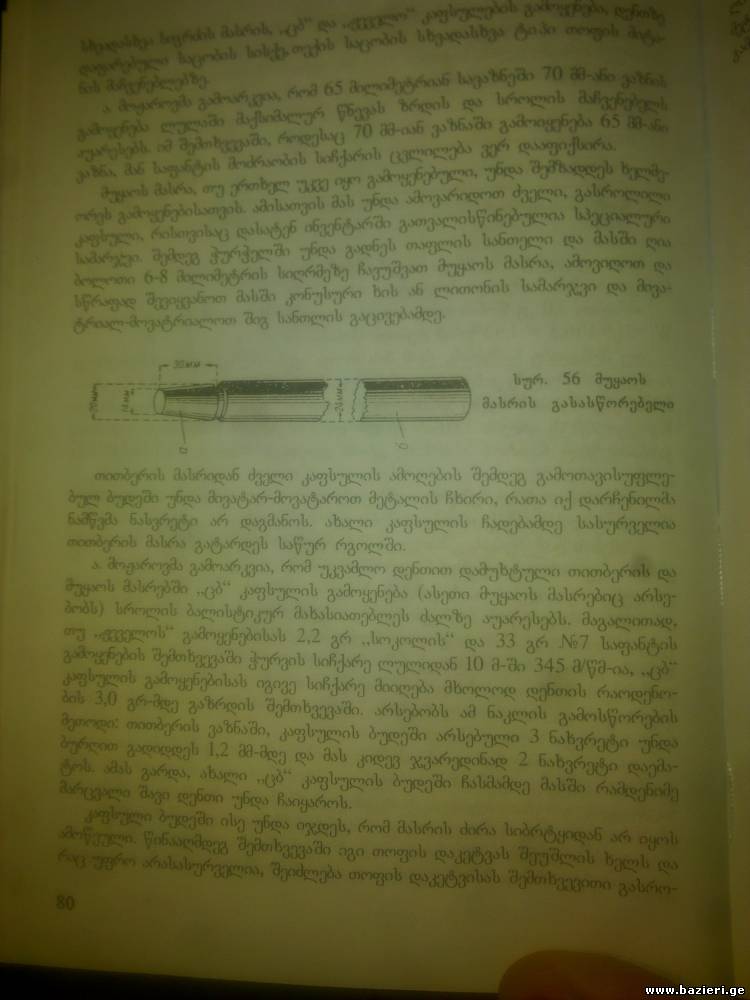 სხვადასხვა სიგრძის მასრის, „ცბ“ და „ჟეველო“ კაფსულების გამოყენება, დენთზე
დაფარებული საცობის სისქე, თექის საცობის სხვადასხვა ტიპი თოფის მიზა-
ნის მაჩვენებლებზე.
ა. მოჟაროვმა გამოარკვია, რომ 65 მილიმეტრიან სავაზნეში 70 მმ-ანი ვაზნის
გამოყენება ლულაში მაქსიმალურ წნევას ზრდის და სროლის მაჩვენებელს
აუარესებს. იმ შემთხვევაში, როდესაც 70 მმ-იან ვაზნაში გამოიყენება 65 მმ-ანი
ვაზნა, მან საფანტის მოძრაობის სიჩქარის ცვლილება ვერ დააფიქსირა.
მუყაოს მასრა, თუ ერთხელ უკვე იყო გამოყენებული, უნდა შემზადდეს ხელმე-
ორეს გამოყენებისათვის. ამისათვის მას უნდა ამოვარიდოთ ძველი, გასროლილი
კაფსული, რისთვისაც დასატენ ინვენტარში გათვალისწინებულია სპეციალური
სამარჯვი. შემდეგ ჭურჭელში უნდა გადნეს თაფლის სანთელი და მასში ღია
ბოლოთი 6-8 მილიმეტრის სიღრმეზე ჩავუშვათ მუყაოს მასრა, ამოვიღოთ და
სწრაფად შევიყვანოთ მასში კონუსური ხის ან ლითონის სამარჯვი და მივა-
ტრიალ-მოვატრიალოთ შიგ სანთლის გაცივებამდე.
30мм
20мм
14мм
20мм
სურ. 56 მუყაოს
მასრის გასასწორებელი
თითბერის მასრიდან ძველი კაფსულის ამოღების შემდეგ გამოთავისუფლე-
ბულ ბუდეში უნდა მივატარ-მოვატაროთ მეტალის ჩხირი, რათა იქ დარჩენილმა
ნამწვმა ნასვრეტი არ დაგმანოს. ახალი კაფსულის ჩადებამდე სასურველია
თითბერის მასრა გატარდეს საწურ რგოლში.
ა. მოჟაროვმა გამოარკვია, რომ უკვამლო დენთით დამუხტული თითბერის და
მუყაოს მასრებში „ცბ“ კაფსულის გამოყენება (ასეთი მუყაოს მასრებიც არსე-
ბობს) სროლის ბალისტიკურ მახასიათებლეს ძალზე აუარესებს. მაგალითად,
თუ „ჟეველოს“ გამოყენებისას 2,2 გრ „სოკოლის“ და 33 გრ №7 საფანტის
გამოყენების შემთხვევაში ჭურვის სიჩქარე ლულიდან 10 მ-ში 345 მ/წმ-ია, „ცბ“
კაფსულის გამოყენებისას იგივე სიჩქარე მიიღება მხოლოდ დენთის რაოდენო-
ბის 3,0 გრ-მდე გაზრდის შემთხვევაში. არსებობს ამ ნაკლის გამოსწორების
მეთოდი: თითბერის ვაზნაში, კაფსულის ბუდეში არსებული 3 ნახვრეტი უნდა
ბურღით გადიდდეს 1,2 მმ-მდე და მას კიდევ ჯვარედინად 2 ნახვრეტი დაემა-
ტოს. ამას გარდა, ახალი „ცბ“ კაფსულის ბუდეში ჩასმამდე მასში რამდენიმე
მარცვალი შავი დენთი უნდა ჩაიყაროს.
კაფსული ბუდეში ისე უნდა იჯდეს, რომ მასრის ძირა სიბრტყიდან არ იყოს
ამოწეული. წინააღმდეგ შემთხვევაში იგი თოფის დაკეტვას შეუშლის ხელს და
რაც უფრო არასასურველია, შეიძლება თოფის დაკეტვისას შემთხვევითი გასრო-
80
www.bazieri.ge